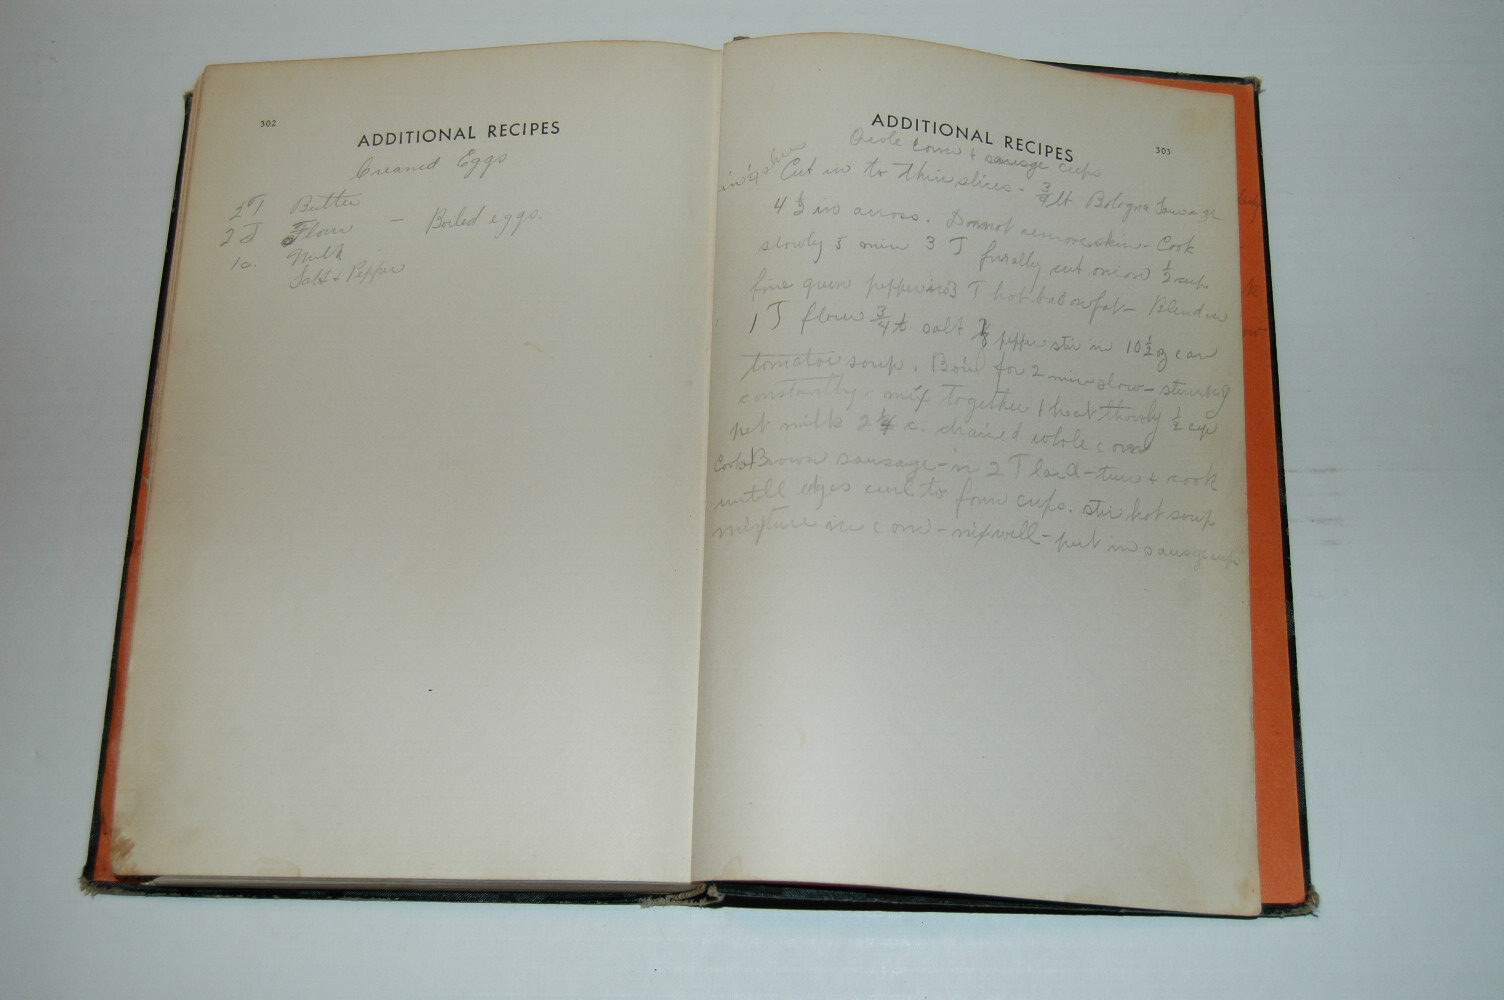 302
ADDITIONAL RECIPES
Creamed Eggs
2 T Butter
2 T Flour — Boiled eggs.
1 c. Milk
Salt + Pepper
ADDITIONAL RECIPES
303
Creole Corn + sausage cups
Cut in to thin slices - 3/4 lb Bologna Sausage
4 1/2 in across. Donnot remove skin - Cook
slowly 5 min 3 T finally cut onion 1/2 cup
fine green pepper in 3 T hot bacon fat - Blend in
1 T flour 3/4 t salt 1/8 pepper stir in 10 1/2 oz can
tomatoe soup. Boil for 2 min slow - stirring
constantly. mix together & heat thourly 1/2 cup
pet milk 2 1/4 c. drained whole corn
Brown sausage - in 2 T lard - turn + cook
untill edges curl to form cups. stir hot soup
mixture in corn - mix well - put in sausage cups